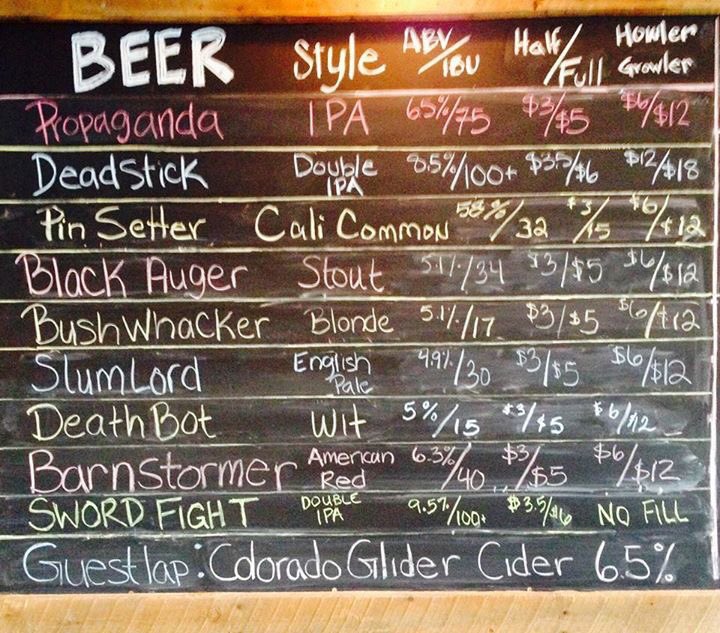 BEER Style ABV/IBU Half/Full Howler Growler
Propaganda IPA 65%/75 $3/$5 $6/$12
Deadstick Double IPA 8.5%/100+ $3.5/$6 $12/$18
Pin Setter Cali Common 58%/32 $3/$5 $6/$12
Black Auger Stout 5.1%/34 $3/$5 $6/$12
BushWhacker Blonde 5.1%/17 $3/$5 $6/$12
SlumLord English Pale 4.9%/30 $3/$5 $6/$12
Death Bot Wit 5%/15 $3/$5 $6/$12
Barnstormer American Red 6.3%/40 $3/$5 $6/$12
SWORD FIGHT DOUBLE IPA 9.5%/100+ $3.5/$6 NO FILL
Guest Tap: Colorado Glider Cider 6.5%